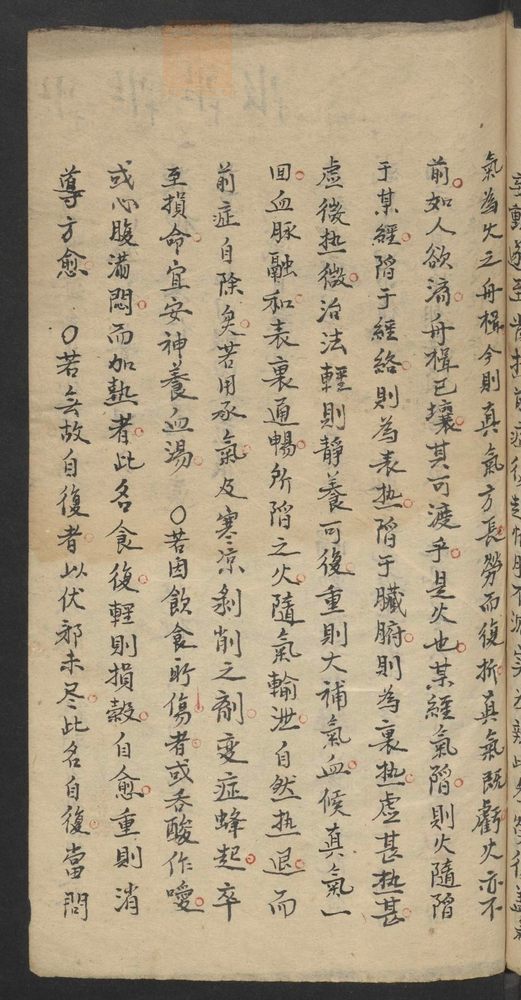 氣為火之舟楫今則真氣方長勞而復折真氣既虧火亦不
前如人欲済舟楫已壞其可渡乎是火也某經氣陷則火隨陷
于某經陷于經絡則為表热陷于臟腑則為裏热虛甚热甚
虛微热微治法輕則靜養可復重則大補氣血候真氣一
回血脉融和表裏通暢所陷之火隨氣輸泄自然热退而
前症自除矣若用承氣及寒凉剥削之劑变症蜂起卒
至損命宜安神養血湯 〇若因飲食所傷者或吞酸作噯
或心腹滿悶而加熱者此名食復輕則損穀自愈重則消
導方愈 〇若無故自復者以伏邪未尽此名自復當問